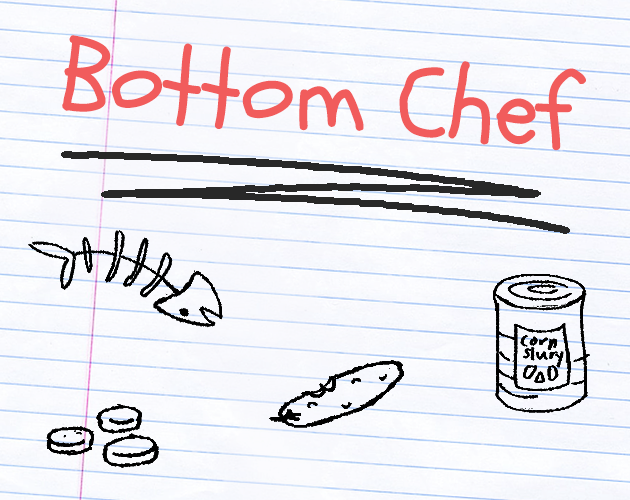 Bottom Chef
corn
slury